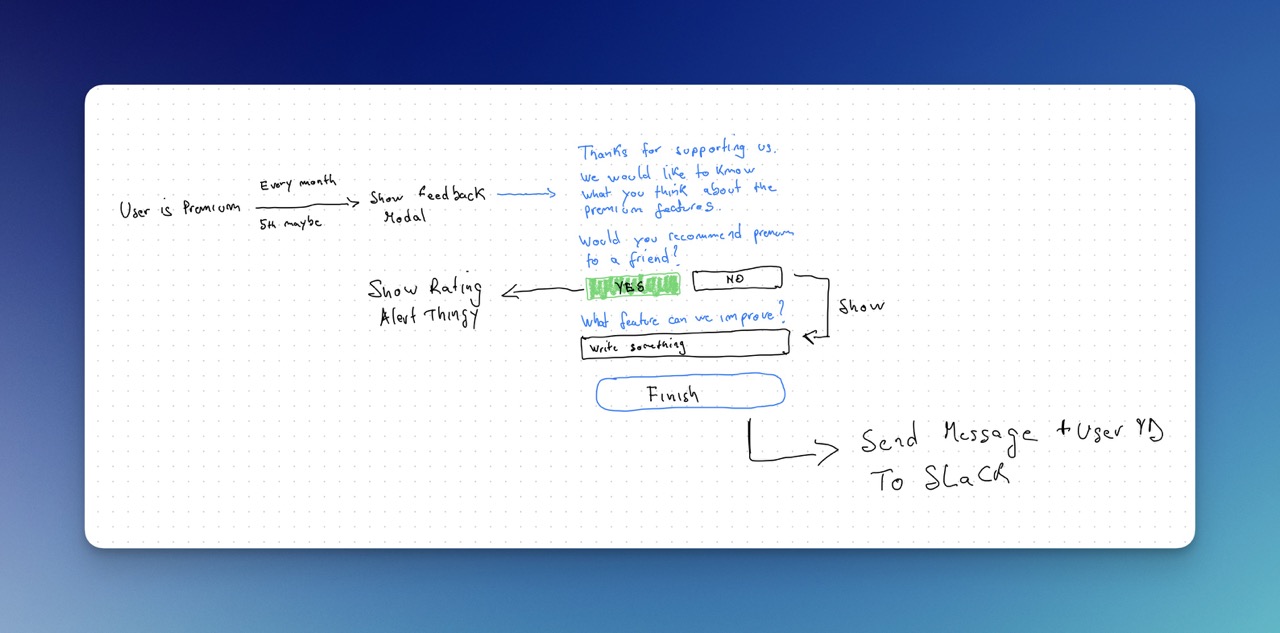 User is Premium
Every month
5th maybe
Show Feedback
Modal
Thanks for supporting us.
We would like to know
what you think about the
premium features.
Would you recommend premium
to a friend?
YES
NO
Show Rating
Alert Thingy
What feature can we improve?
Show
Write something
Finish
Send Message + User ID
To Slack